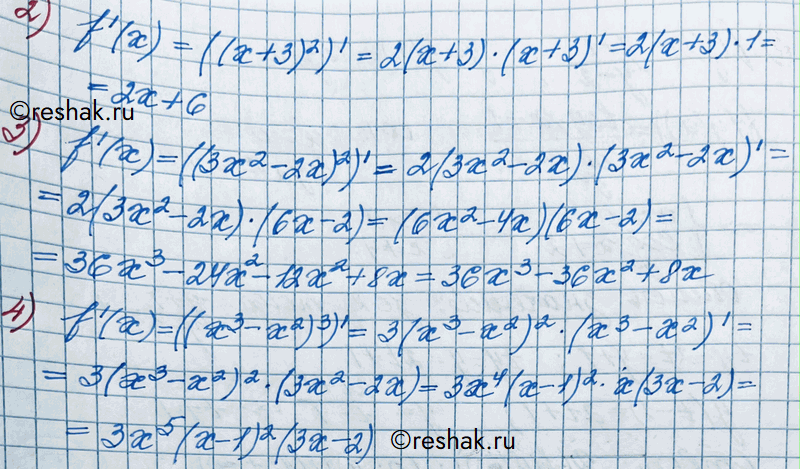 2) f'(x) = ((x+3)²)' = 2(x+3)·(x+3)' = 2(x+3)·1 =
= 2x+6
©reshak.ru
3) f'(x) = ((3x²-2x)²)' = 2(3x²-2x)·(3x²-2x)' =
= 2(3x²-2x)·(6x-2) = (6x²-4x)(6x-2) =
= 36x³-24x²-12x²+8x = 36x³-36x²+8x
4) f'(x) = ((x³-x²)³)' = 3(x³-x²)²·(x³-x²)' =
= 3(x³-x²)²·(3x²-2x) = 3x⁴(x-1)²·x(3x-2) =
= 3x⁵(x-1)²(3x-2)
©reshak.ru